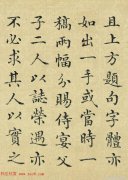 且上方題句字體亦
如出一手或當時一
稿兩幅分賜侍宴父
子二人以誌榮遇亦
不必求其人以實之